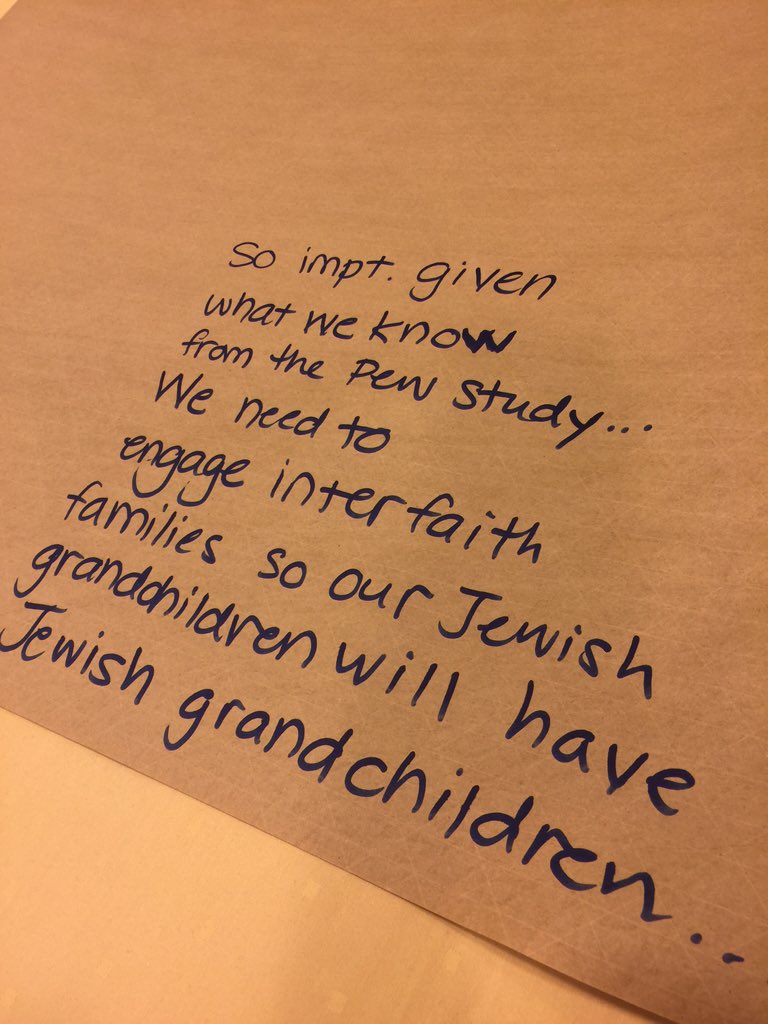 So impt. given
what we know
from the Pew study...
We need to
engage interfaith
families so our Jewish
grandchildren will have
Jewish grandchildren...